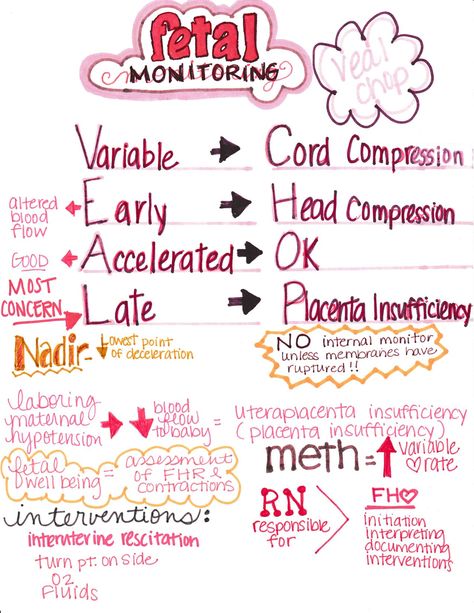 fetal
MONITORING
Veal
chop
Variable → Cord Compression
altered
blood
flow
← Early → Head Compression
GOOD ← Accelerated → OK
MOST
CONCERN
Late → Placenta Insufficiency
Nadir - ↓ lowest point
of deceleration
NO internal monitor
unless membranes have
ruptured!!
laboring
maternal
hypotension
→ ↓ blood
flow
to baby =
uteraplacenta insufficiency
(placenta insufficiency)
fetal
well being = assessment
of FHR &
contractions
meth = ↑ variable
♡ rate
interventions:
interuterine rescitation
turn pt. on side
O2
Fluids
RN
responsible
for
>
FH♡
initiation
interpreting
documenting
interventions